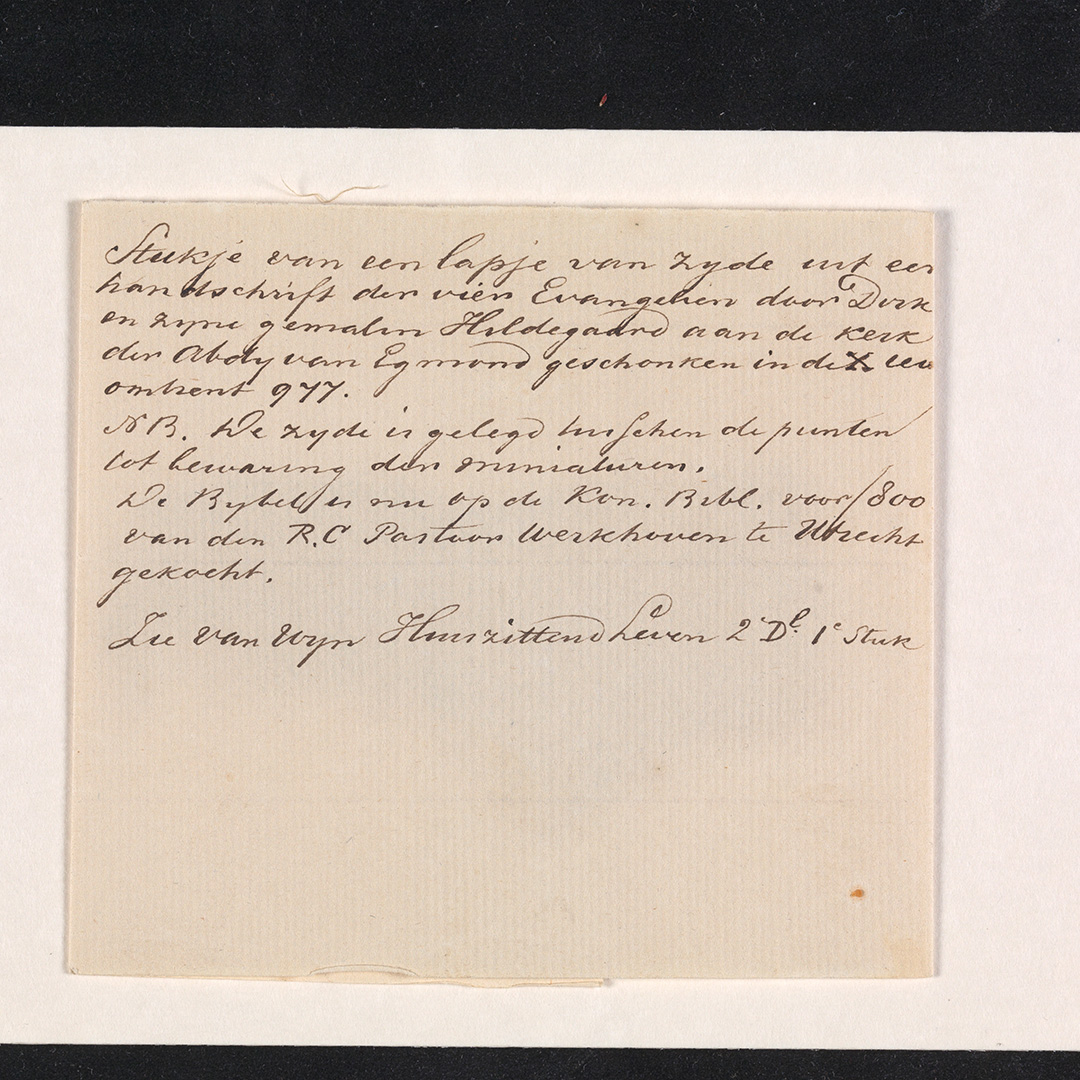 Stukje van een lapje van zyde uit een
handschrift der vier Evangelien door Dirk
en zyne gemalin Hildegaard aan de Kerk
der Abdy van Egmond geschonken in de X eeu
omtrent 977.
NB. De zyde is gelegd tusschen de punten
tot bewaring der miniaturen.
De Bybel is nu op de Kon. Bibl. voor ƒ 800
van den R.C Pastoor Werkhoven te Utrecht
gekocht.
Zie van Wyn Huiszittend Leven 2 Dl. 1e Stuk